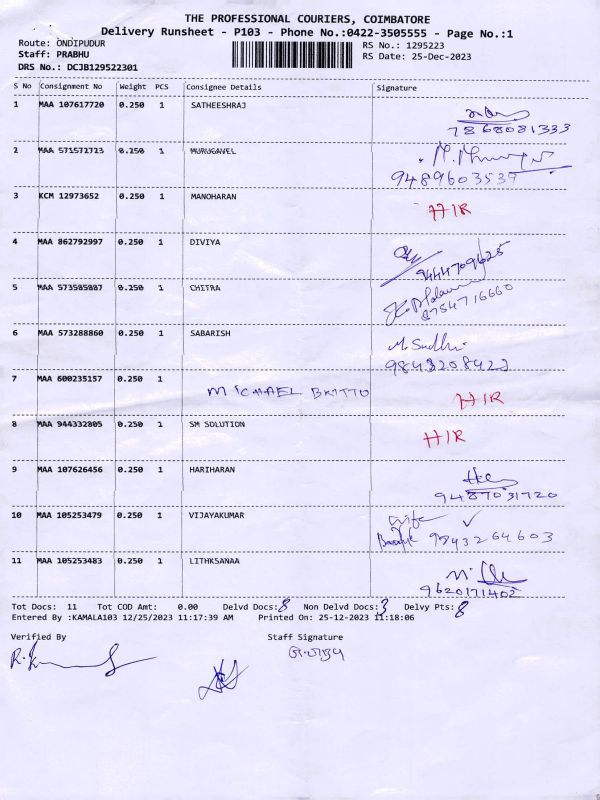 THE PROFESSIONAL COURIERS, COIMBATORE
Delivery Runsheet - P103 - Phone No.:0422-3505555 - Page No.:1
Route: ONDIPUDUR RS No.: 1295223
Staff: PRABHU RS Date: 25-Dec-2023
DRS No.: DCJB129522301
S No Consignment No Weight PCS Consignee Details Signature
1 MAA 107617720 0.250 1 SATHEESHRAJ
7868081333
2 MAA 571571723 0.250 1 MURUGAVEL
9489603539
3 KCM 12973652 0.250 1 MANOHARAN HIR
4 MAA 862792997 0.250 1 DIVIYA
9444709625
5 MAA 573505087 0.250 1 CHITRA
8754716660
6 MAA 573288860 0.250 1 SABARISH M. Sudhi
9843208423
7 MAA 600235157 0.250 1 MICHAEL BRITTO HIR
8 MAA 944332805 0.250 1 SM SOLUTION HIR
9 MAA 107626456 0.250 1 HARIHARAN
9487031720
10 MAA 105253479 0.250 1 VIJAYAKUMAR wife ✓
9843264603
11 MAA 105253483 0.250 1 LITHKSANAA
9620171402
Tot Docs: 11 Tot COD Amt: 0.00 Delvd Docs: 8 Non Delvd Docs: 3 Delvy Pts: 8
Entered By :KAMALA103 12/25/2023 11:17:39 AM Printed On: 25-12-2023 11:18:06
Verified By Staff Signature